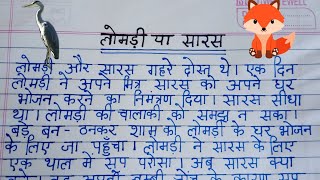 लोमड़ी या सारस
लोमड़ी और सारस गहरे दोस्त थे। एक दिन
लोमड़ी ने अपने मित्र सारस को अपने घर
भोजन करने का निमंत्रण दिया। सारस सीधा
था। लोमड़ी की चालाकी को समझ न सका।
बड़े बन-ठनकर शाम को लोमड़ी के घर भोजन
के लिए जा पहुंचा। लोमड़ी ने सारस के लिए
एक थाल में सूप परोसा। अब सारस क्या